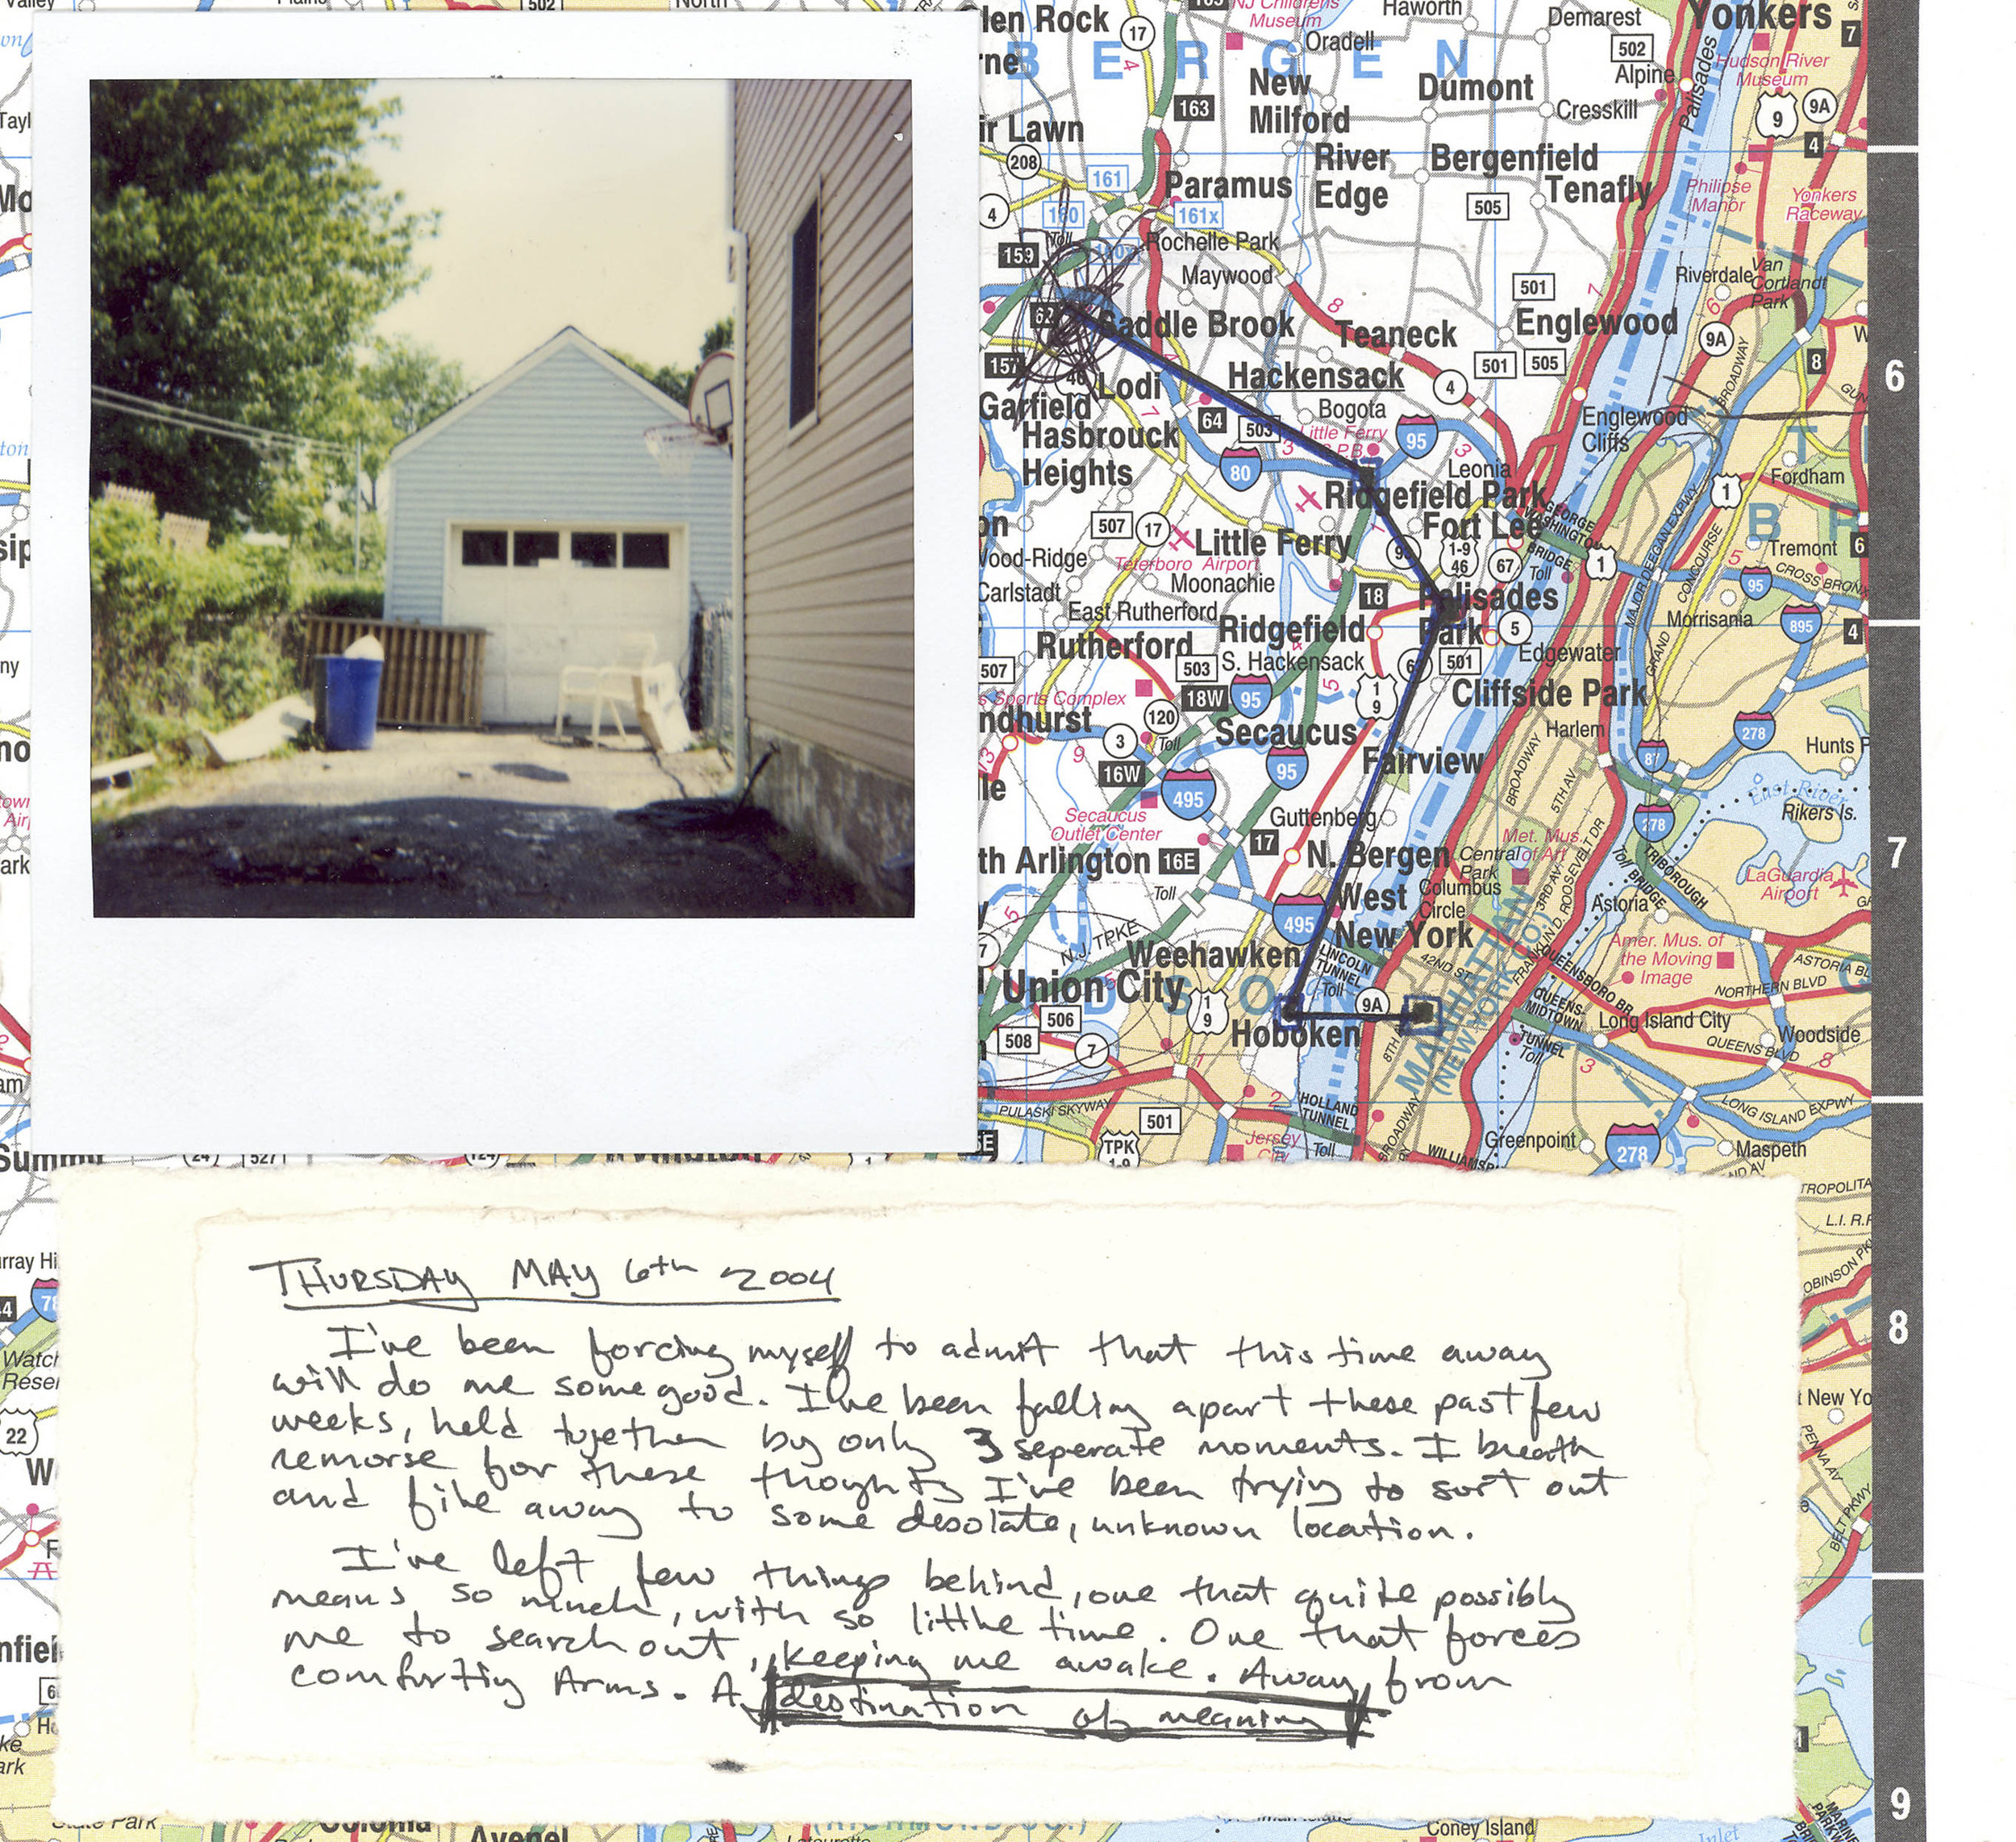 THURSDAY MAY 6th 2004
I've been forcing myself to admit that this time away
will do me some good. I've been falling apart these past few
weeks, held together by only 3 seperate moments. I breath
remorse for these thoughts I've been trying to sort out
and file away to some desolate, unknown location.
I've left few things behind, one that quite possibly
means so much, with so little time. One that forces
me to search out, keeping me awake. Away from
comforting Arms. A destination of meaning
len Rock
17
BERGEN
NJ Childrens
Museum
Haworth
Oradell
Demarest
502
Yonkers
7
New
Milford
Dumont
Alpine
Cresskill
Palisades
Hudson River
Museum
9
9A
163
ir Lawn
208
River
Edge
Bergenfield
Tenafly
4
161
Paramus
505
Philipse
Manor
Yonkers
Raceway
4
160
161x
Toll
159
Rochelle Park
Maywood
Riverdale
Van
Cortlandt
Park
501
62
Saddle Brook
Teaneck
Englewood
9A
BROADWAY
8
157
46
Lodi
Hackensack
4
501
505
6
Garfield
Hasbrouck
Heights
64
503
Bogota
Little Ferry
95
Englewood
Cliffs
80
Leonia
Ridgefield Park
Fordham
1
507
17
Little Ferry
Fort Lee
GEORGE
WASHINGTON
BRIDGE
Toll
MAJOR DEEGAN EXPWY
CONCOURSE
GRAND
Tremont
6
Wood-Ridge
Teterboro Airport
Moonachie
1-9
46
67
1
CROSS BRONX
95
Carlstadt
East Rutherford
18
Palisades
Park
5
Morrisania
895
4
Rutherford
Ridgefield
507
503
S. Hackensack
501
Edgewater
s Sports Complex
18W
95
1
9
Cliffside Park
ndhurst
120
3
Toll
Secaucus
Harlem
278
Hunts P
16W
95
Fairview
BROADWAY
5TH AV
87
495
East River
Rikers Is.
Secaucus
Outlet Center
Guttenberg
278
7
17
Met. Mus.
of Art
Central
Park
3RD AV
FRANKLIN D. ROOSEVELT DR
TRIBOROUGH
BRIDGE
Toll
LaGuardia
Airport
th Arlington
16E
Toll
N. Bergen
West
New York
Columbus
Circle
Astoria
N.J. TPKE
495
Weehawken
LINCOLN
TUNNEL
Toll
42ND ST
QUEENSBORO BR
Amer. Mus. of
the Moving
Image
ASTORIA BL
Union City
1
9
MANHATTAN
(NEW YORK CO.)
QUEENS-
MIDTOWN
TUNNEL
Toll
NORTHERN BLVD
506
508
7
Hoboken
9A
8TH AV
Long Island City
Woodside
QUEENS BLVD
PULASKI SKYWAY
501
HOLLAND
TUNNEL
Toll
BROADWAY
LONG ISLAND EXPWY
TPK
1-9
Jersey
City
Greenpoint
278
Maspeth
8
9
22
Coney Island
Inlet